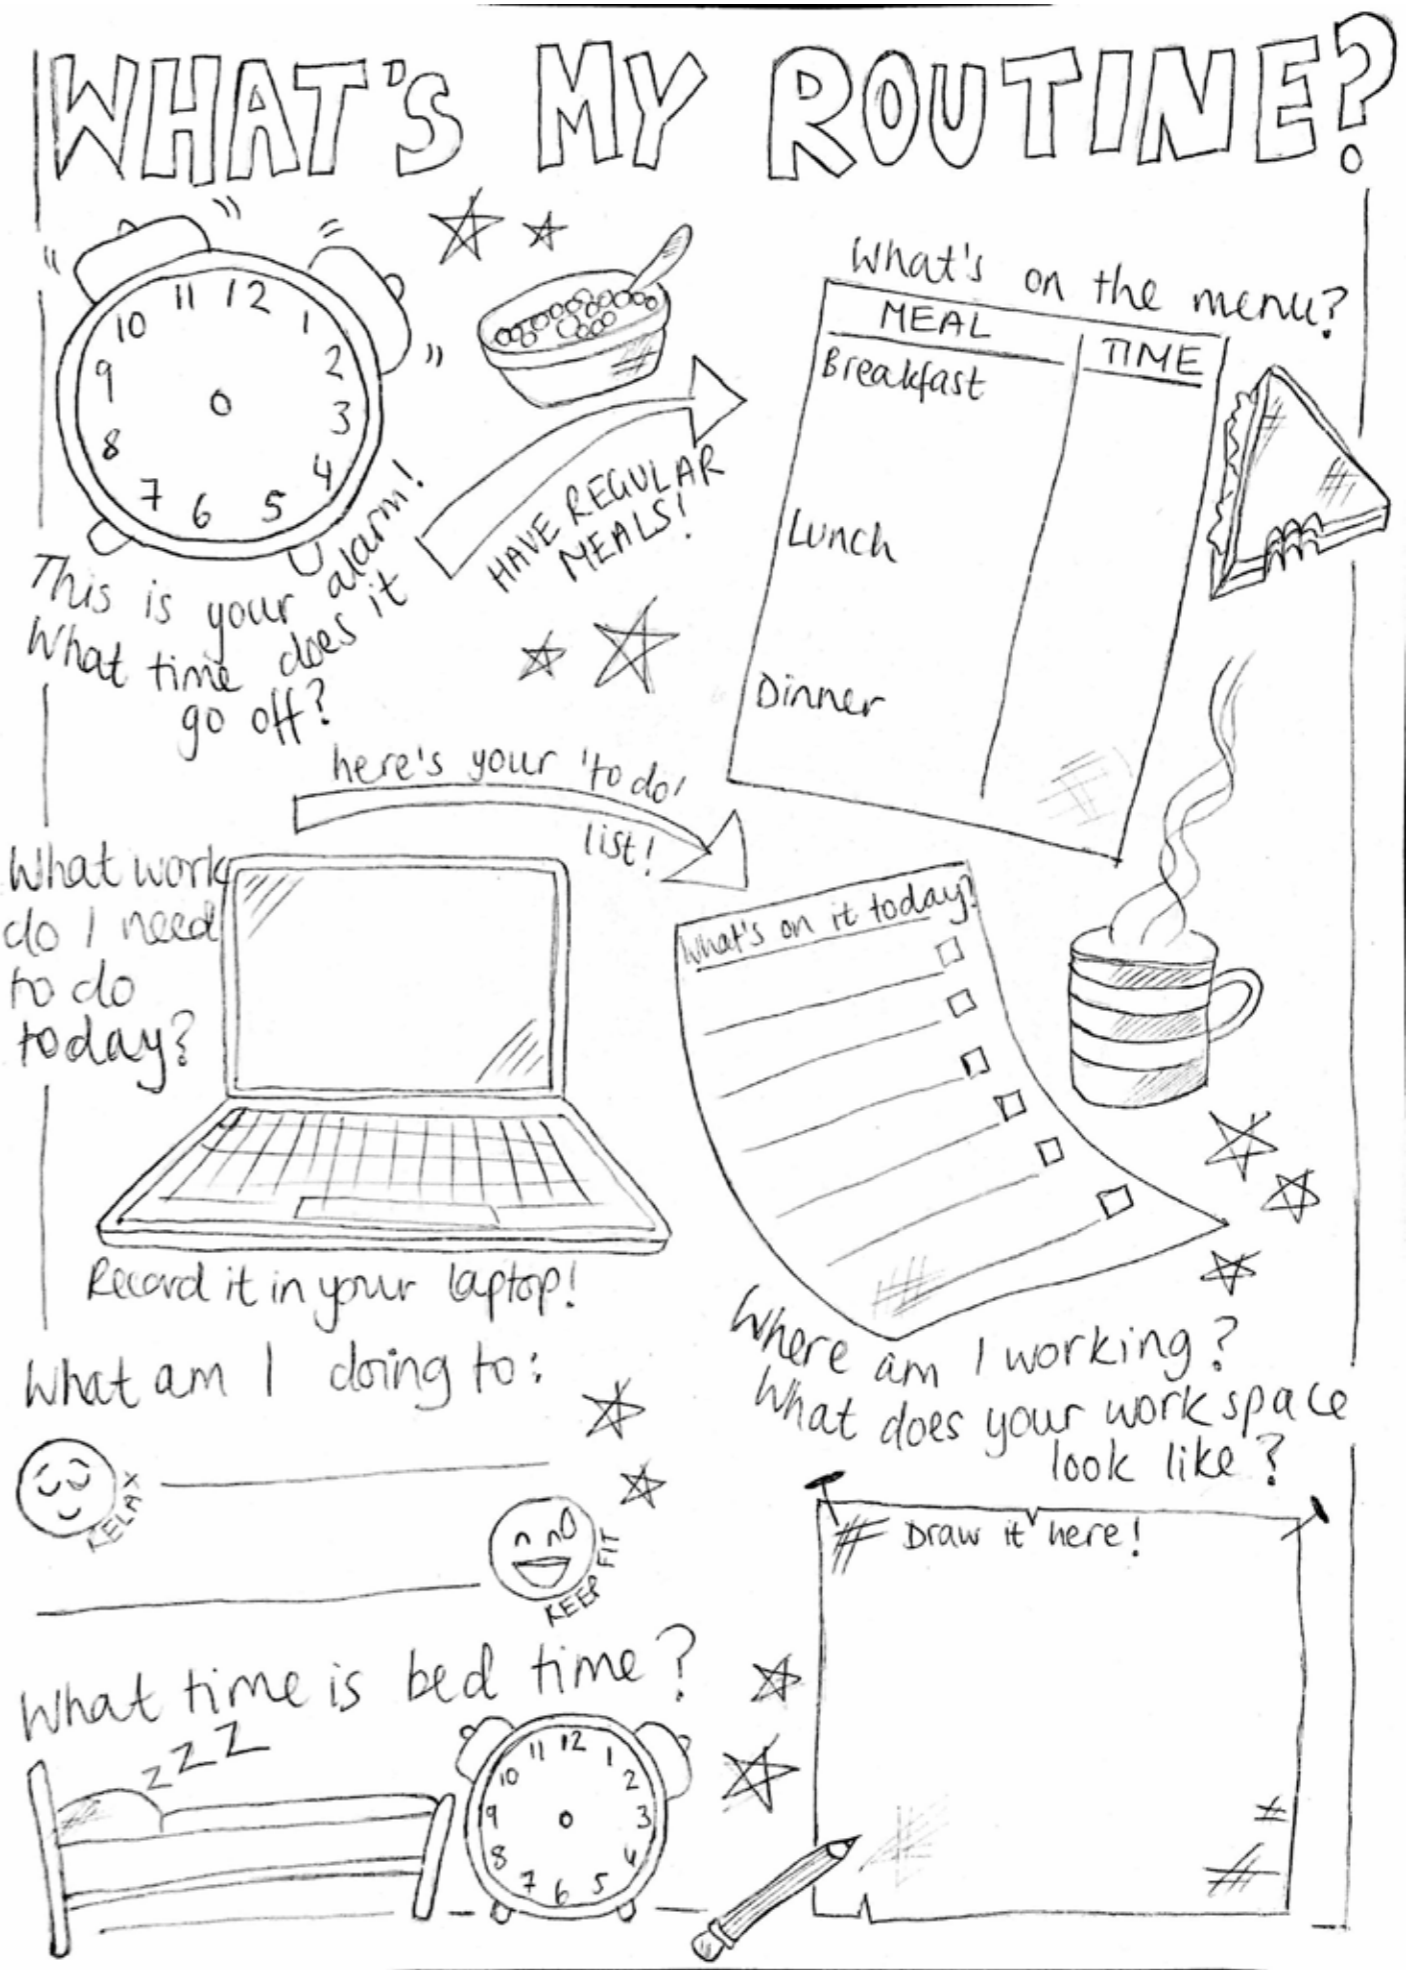 WHAT'S MY ROUTINE?
11 12 1
10 2
9 3
8 4
7 6 5
This is your alarm!
What time does it
go off?
HAVE REGULAR
MEALS!
What's on the menu?
MEAL TIME
Breakfast
Lunch
Dinner
here's your 'to do'
list!
What work
do I need
to do
today?
Record it in your laptop!
What's on it today?
What am I doing to:
RELAX
KEEP FIT
Where am I working?
What does your work space
look like?
Draw it here!
What time is bed time?
z z z
11 12 1
10 2
9 3
8 4
7 6 5